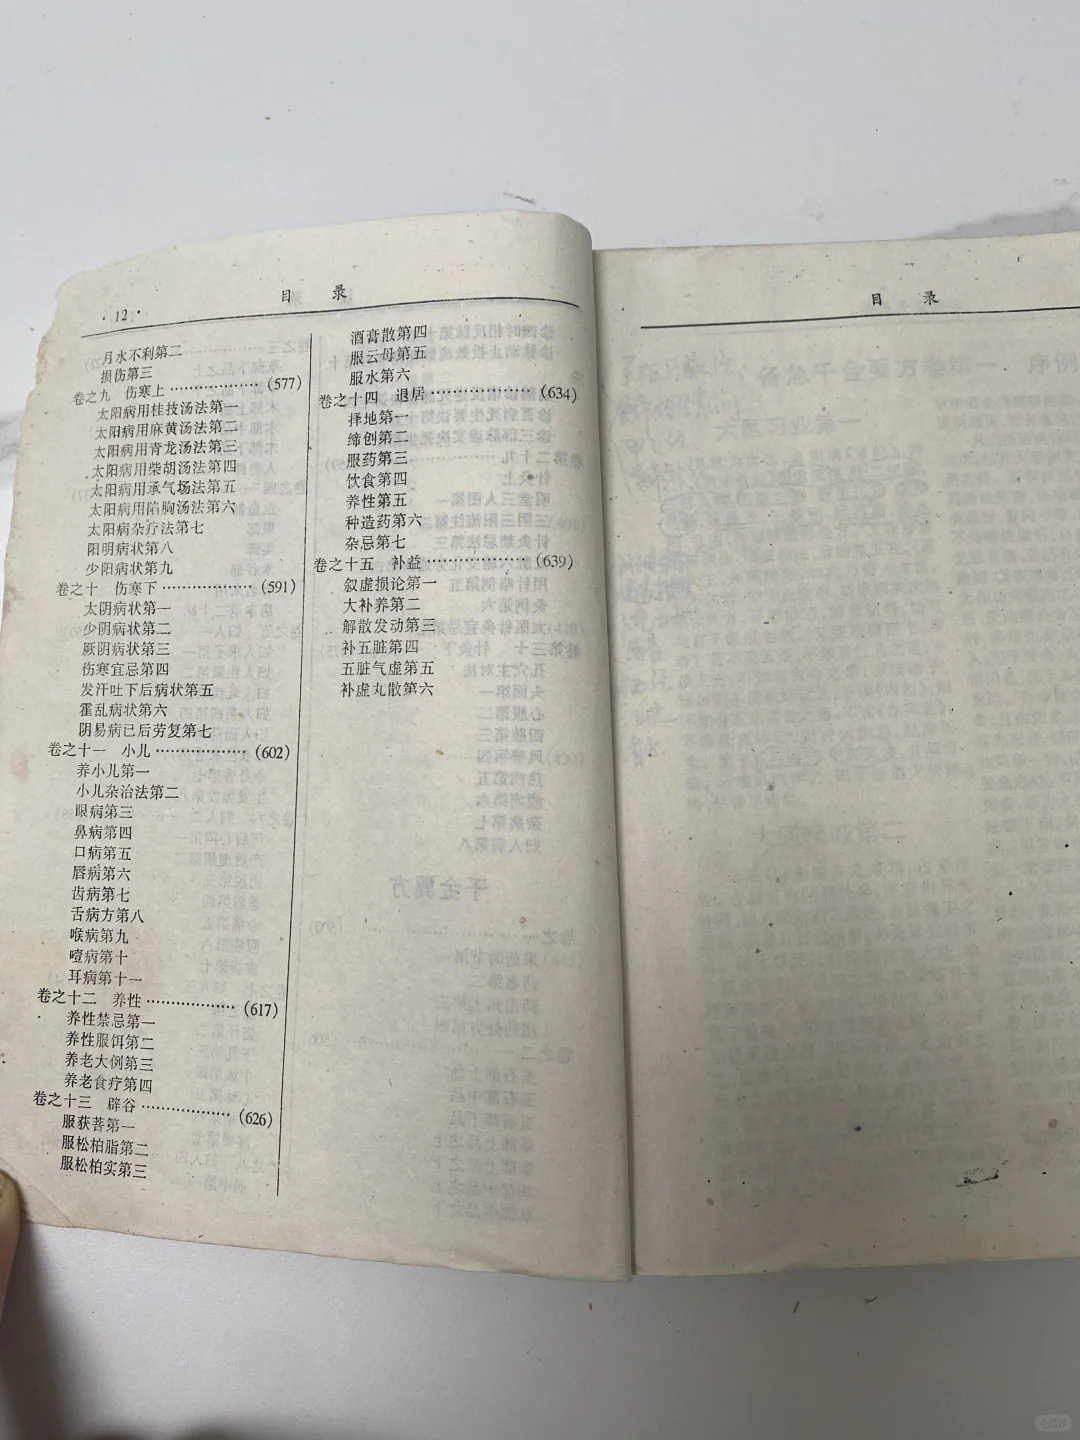 · 12 ·
目 录
月水不利第二
损伤第三
卷之九 伤寒上 ……………… (577)
太阳病用桂技汤法第一
太阳病用麻黄汤法第二
太阳病用青龙汤法第三
太阳病用柴胡汤法第四
太阳病用承气场法第五
太阳病用陷胸汤法第六
太阳病杂疗法第七
阳明病状第八
少阳病状第九
卷之十 伤寒下 ……………… (591)
太阴病状第一
少阴病状第二
厥阴病状第三
伤寒宜忌第四
发汗吐下后病状第五
霍乱病状第六
阴易病已后劳复第七
卷之十一 小儿 ……………… (602)
养小儿第一
小儿杂治法第二
眼病第三
鼻病第四
口病第五
唇病第六
齿病第七
舌病方第八
喉病第九
噎病第十
耳病第十一
卷之十二 养性 ……………… (617)
养性禁忌第一
养性服饵第二
养老大例第三
养老食疗第四
卷之十三 辟谷 ……………… (626)
服获菩第一
服松柏脂第二
服松柏实第三
酒膏散第四
服云母第五
服水第六
卷之十四 退居 ……………… (634)
择地第一
缔创第二
服药第三
饮食第四
养性第五
种造药第六
杂忌第七
卷之十五 补益 ……………… (639)
叙虚损论第一
大补养第二
解散发动第三
补五脏第四
五脏气虚第五
补虚丸散第六
目 录